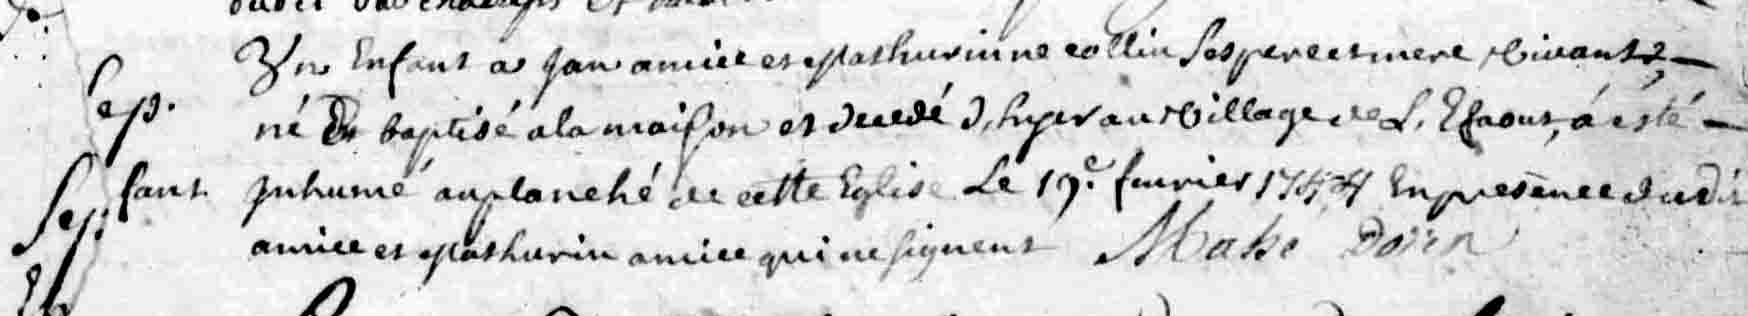 Vn Enfant a Jan amice et Mathurinne collin Ses pere et mere vivants,
Sep. né Et baptisé a la maison et decedé d'hyer au village de L. a esté
fant. Jnhumé au planché de cette Eglise Le 19e. feuvrier 1744 En presence dudit
Sep. amice et Mathurin amice qui ne signent Mahé Doien